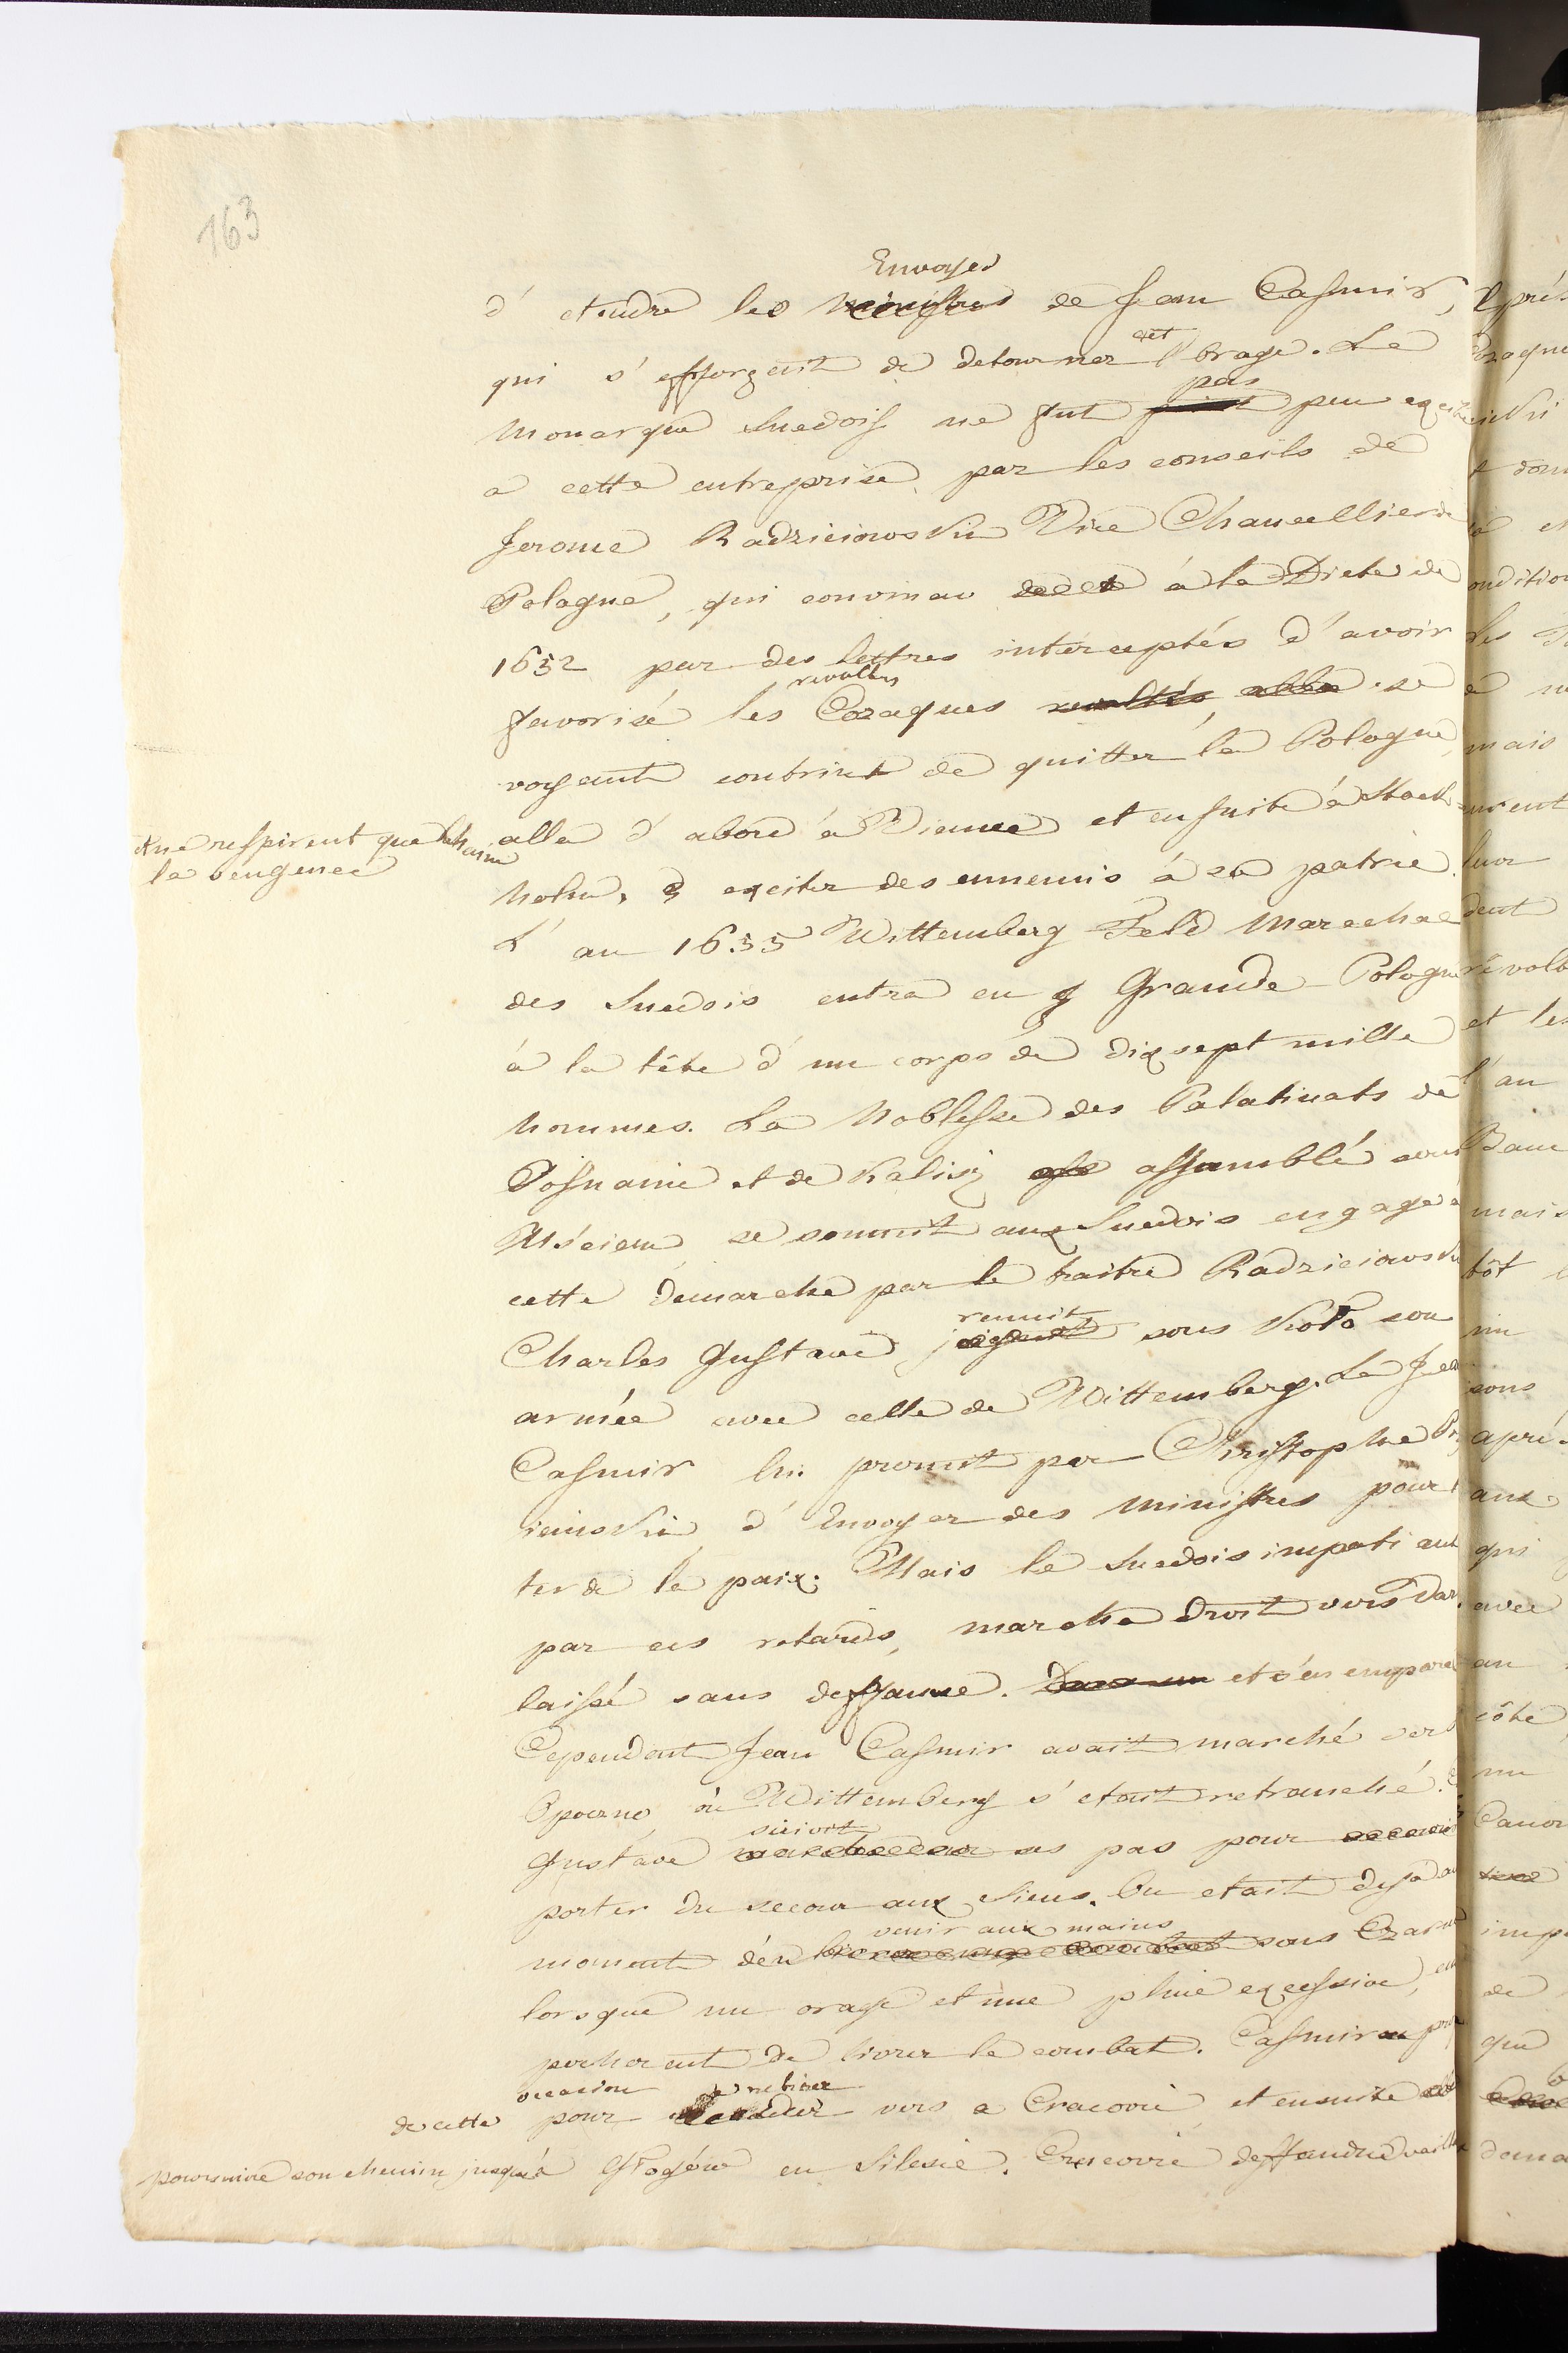 163
Envoyes
d' etendre les ministres de Jean Casimir,
qui s'efforçait de detourner cet orage. Le
pas
Monarque Suedois ne fut point peu excité
a cette entreprise par les conseils de
Jerome Radzieiowski Vice Chancellier de
Pologne, qui convincu à la Diete de
1652 par des lettres interceptés d'avoir
revoltés
favorisé les Cozaques revoltés alla. se
voyant contrint de quitter la Pologne,
alla d'abord à Vienne et ensuite à Stock
& ne respirent que la haine
la vengence
holm, & exciter des ennemis à sa patrie.
L'an 1655 Wittemberg Feld Marechal
des Suedois entra en g Grande Pologne
à la tête d'un corps de dix sept mille
hommes. La Noblesse des Palatinats de
Posnanie et de Kalisz assamblé sous
Uscien se soumit aux Suedois engagé à
cette demarche par le traitre Radzieiowski
reunit
Charles Gustave joignit sous Koło son
armée avec celle de Wittemberg. Le Jean
Casmir lui promit par Christophe Prz
iemski d'Envoyer des ministres pour
ter de la paix. Mais le Suedois impatient
par ces retards, marcha droit vers Var.
laissé sans deffanse. et s'en empara
Cependant Jean Casmir avait marché vers
Opoczno, où Wittemberg s'etait retranché.
suivit
Gustave ses pas pour
porter du secour aux siens. On etait deja au
venir aux mains
moment d'en sous Czarno
lorsque un orage et une pluie excessive, em
pecherent de livrer le combat. Casmir
occasion se retirer
de cette pour vers a Cracovie, et ensuite
poursuivre son chemin jusqu'à Głogów en Silesie. Cracovie deffandue vaill